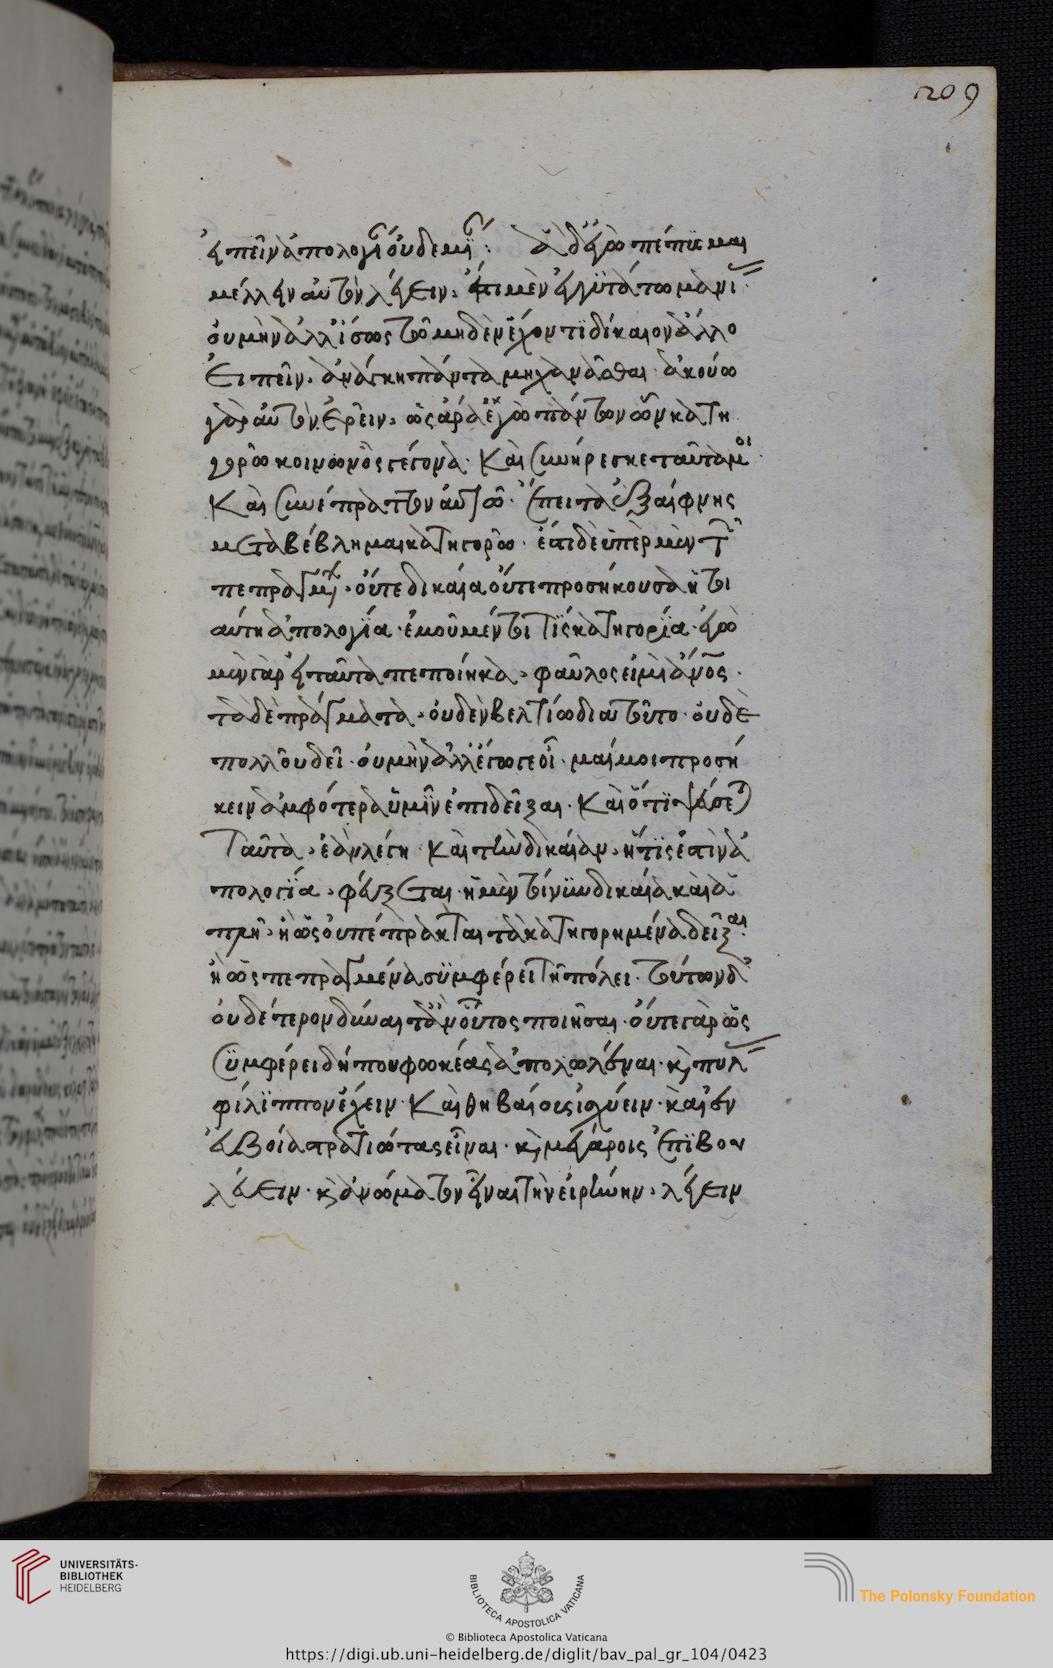 209
εἰπεῖν ἀπολογία οὐδεμία: ἃ δ' ἐγὼ πέπυσμαι
μέλλειν αὐτὸν λέγειν, ἔστι μὲν ἐγγυτάτω μανί
οὐ μὴν ἀλλ' ἴσως τῷ μηδὲν ἔχοντι δίκαιον ἄλλο
εἰπεῖν, ἀνάγκη πάντα μηχανᾶσθαι· ἀκούω
γὰρ αὐτὸν ἐρεῖν, ὡς ἄρα ἐγὼ πάντων ὧν κατη
γορῶ κοινωνὸς γέγονα· καὶ συνήρεσκε ταῦτά μοι·
καὶ συνέπραττον αὐτῷ· ἔπειτα ἐξαίφνης
μεταβέβλημαι κατηγορῶ· ἔστι δὲ ὑπὲρ μὲν τῶν
πεπραγμένων, οὔτε δικαία οὔτε προσήκουσα ἡ τοι
αύτη ἀπολογία· ἐμοῦ μέντοι τις κατηγορία· ἐγὼ
μὲν γὰρ εἰ ταῦτα πεποίηκα, φαῦλός εἰμι ἄνος·
τὰ δὲ πράγματα, οὐδὲν βελτίω διὰ τοῦτο· οὐδὲ
πολλοῦ δεῖ· οὐ μὴν ἀλλ' ἔγωγε οἶμαί μοι προσή
κειν ἀμφότερα ὑμῖν ἐπιδεῖξαι· καὶ ὅτι ψεύσεται
ταῦτα, ἐὰν λέγῃ· καὶ τὴν δικαίαν, ἥτις ἐστὶν ἀ
πολογία, φεύξεται· ἡ μὲν τοίνυν δικαία καὶ ἁ
πλῆ, ἢ ὡς οὐ πέπρακται τὰ κατηγορημένα δεῖξαι·
ἢ ὡς πεπραγμένα συμφέρει τῇ πόλει· τούτων δ'
οὐδέτερον δύναιτο ἂν οὗτος ποιῆσαι· οὔτε γὰρ ὡς
συμφέρει δήπου φωκέας ἀπολωλέναι· καὶ πύλ
φίλιππον ἔχειν· καὶ θηβαίους ἰσχύειν· καὶ ἐν
εὐβοία στρατιώτας εἶναι· καὶ μεγάροις ἐπιβου
λεύειν· καὶ ἀνώμοτον εἶναι τὴν εἰρήνην, λέγειν
UNIVERSITÄTS-
BIBLIOTHEK
HEIDELBERG
BIBLIOTECA APOSTOLICA VATICANA
The Polonsky Foundation
© Biblioteca Apostolica Vaticana
https://digi.ub.uni-heidelberg.de/diglit/bav_pal_gr_104/0423